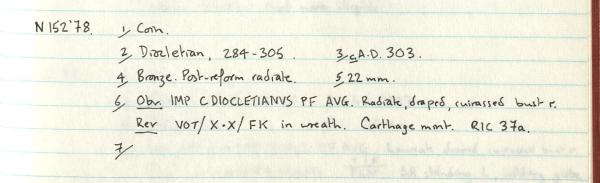 N 152'78. 1/ Coin.
2/ Diocletian, 284-305. 3/ c A.D. 303.
4/ Bronze. Post-reform radiate. 5/ 22 mm.
6/ Obv. IMP C DIOCLETIANVS PF AVG. Radiate, draped, cuirassed bust r.
Rev VOT/X·X/FK in wreath. Carthage mint. RIC 37a.
7/